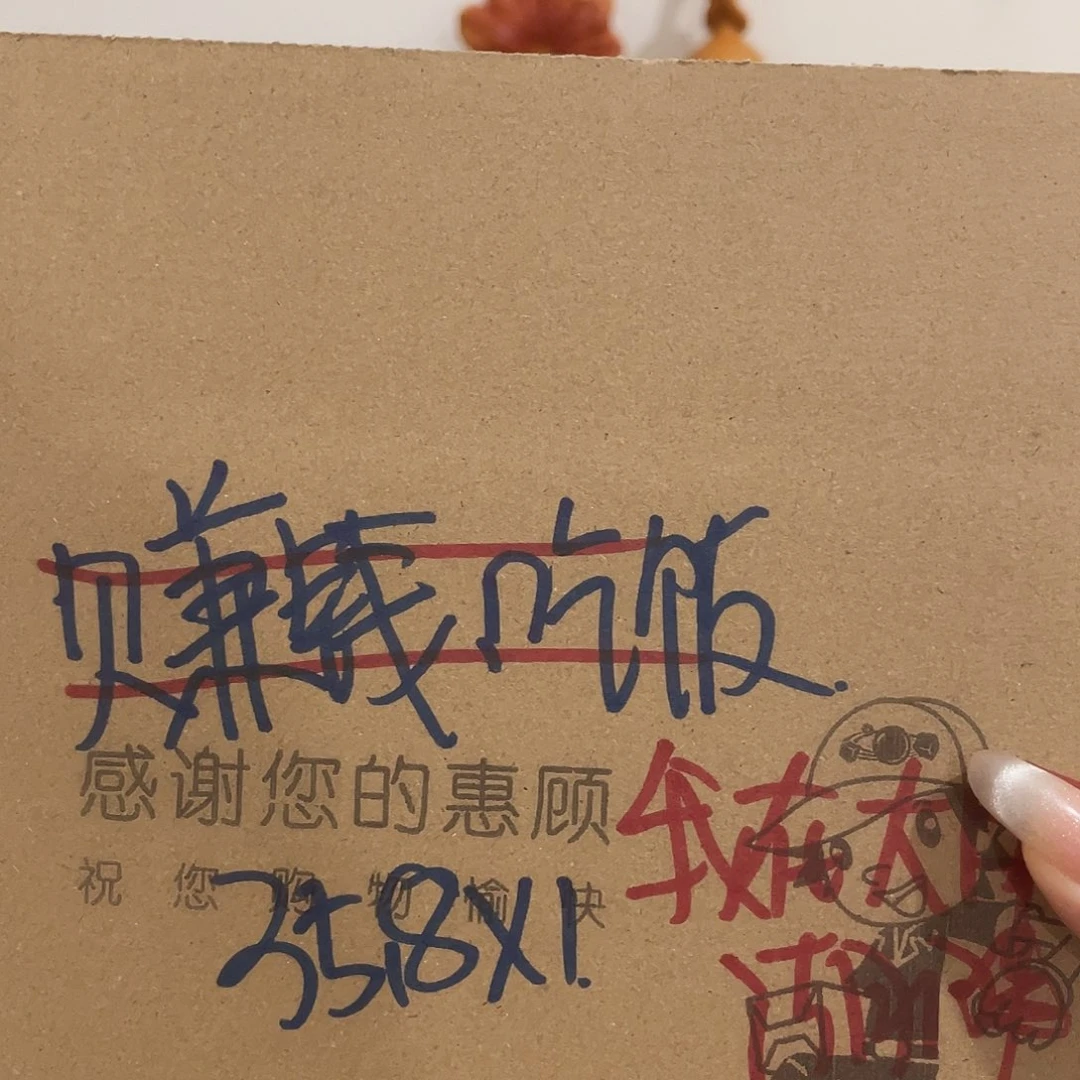 赚钱吃饭.
感谢您的惠顾
祝您购物愉快
35.8X1.
我有大